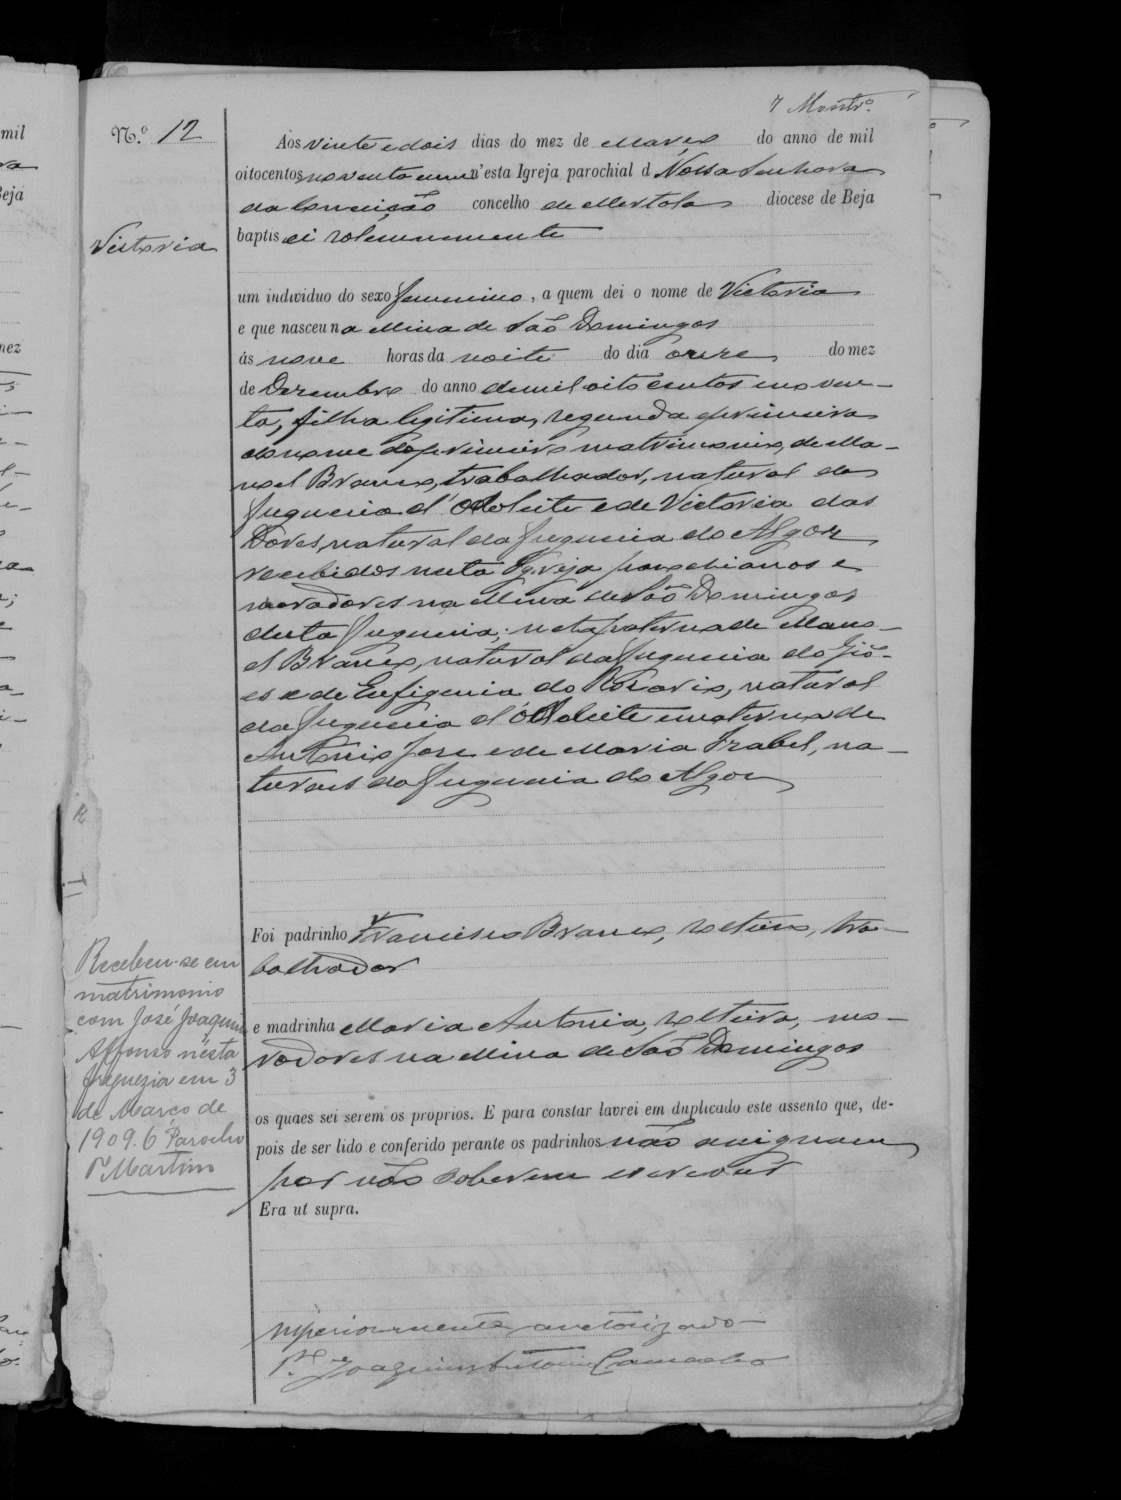 7 Montrº.
N.º 12
Aos vinte e dois dias do mez de Março do anno de mil
oitocentos noventa e um n'esta Igreja parochial d Nossa Senhora
da Conceição concelho de Mertola diocese de Beja
Victoria
baptisei solemnemente
um individuo do sexo femenino, a quem dei o nome de Victoria
e que nasceu na Mina de São Domingos
ás nove horas da noite do dia onze do mez
de Dezembro do anno de mil oito centos e noven-
ta, filha legitima, segunda e primeira
do nome do primeiro matrimonio, de Ma-
noel Branco, trabalhador, natural da
freguezia d'Odoleite e de Victoria das
Dores, natural da freguezia do Algoz
recebidos nesta Igreja, parochianos e
moradores na Mina de São Domingos
desta freguezia; neta paterna de Mano-
el Branco, natural da freguezia do Giõ-
es e de Eufigenia do Rosario, natural
da freguezia d'Odoleite e materna de
Antonio José e de Maria Izabel, na-
turaes da freguezia do Algoz
Foi padrinho Francisco Branco, solteiro, tra-
balhador
e madrinha Maria Antonia, solteira, mo-
radores na Mina de São Domingos
os quaes sei serem os proprios. E para constar lavrei em duplicado este assento que, de-
pois de ser lido e conferido perante os padrinhos não assignam
por não saberem escrever
Era ut supra.
Recebeu-se em
matrimonio
com José Joaquim
Affonso n'esta
freguezia em 3
de Março de
1909. O Parocho
Pe Martins
superiormente auctorizado
Pe. Joaquim Antonio Camacho